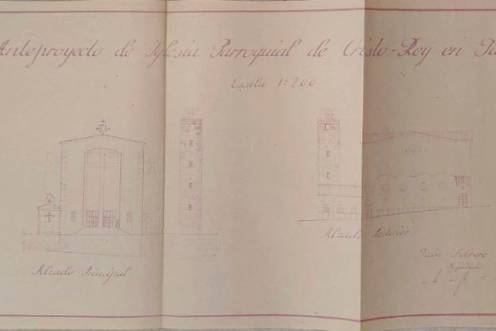 Anteproyecto de Iglesia Parroquial de Cristo-Rey en
Escala 1:200
Alzado Principal
Alzado Posterior